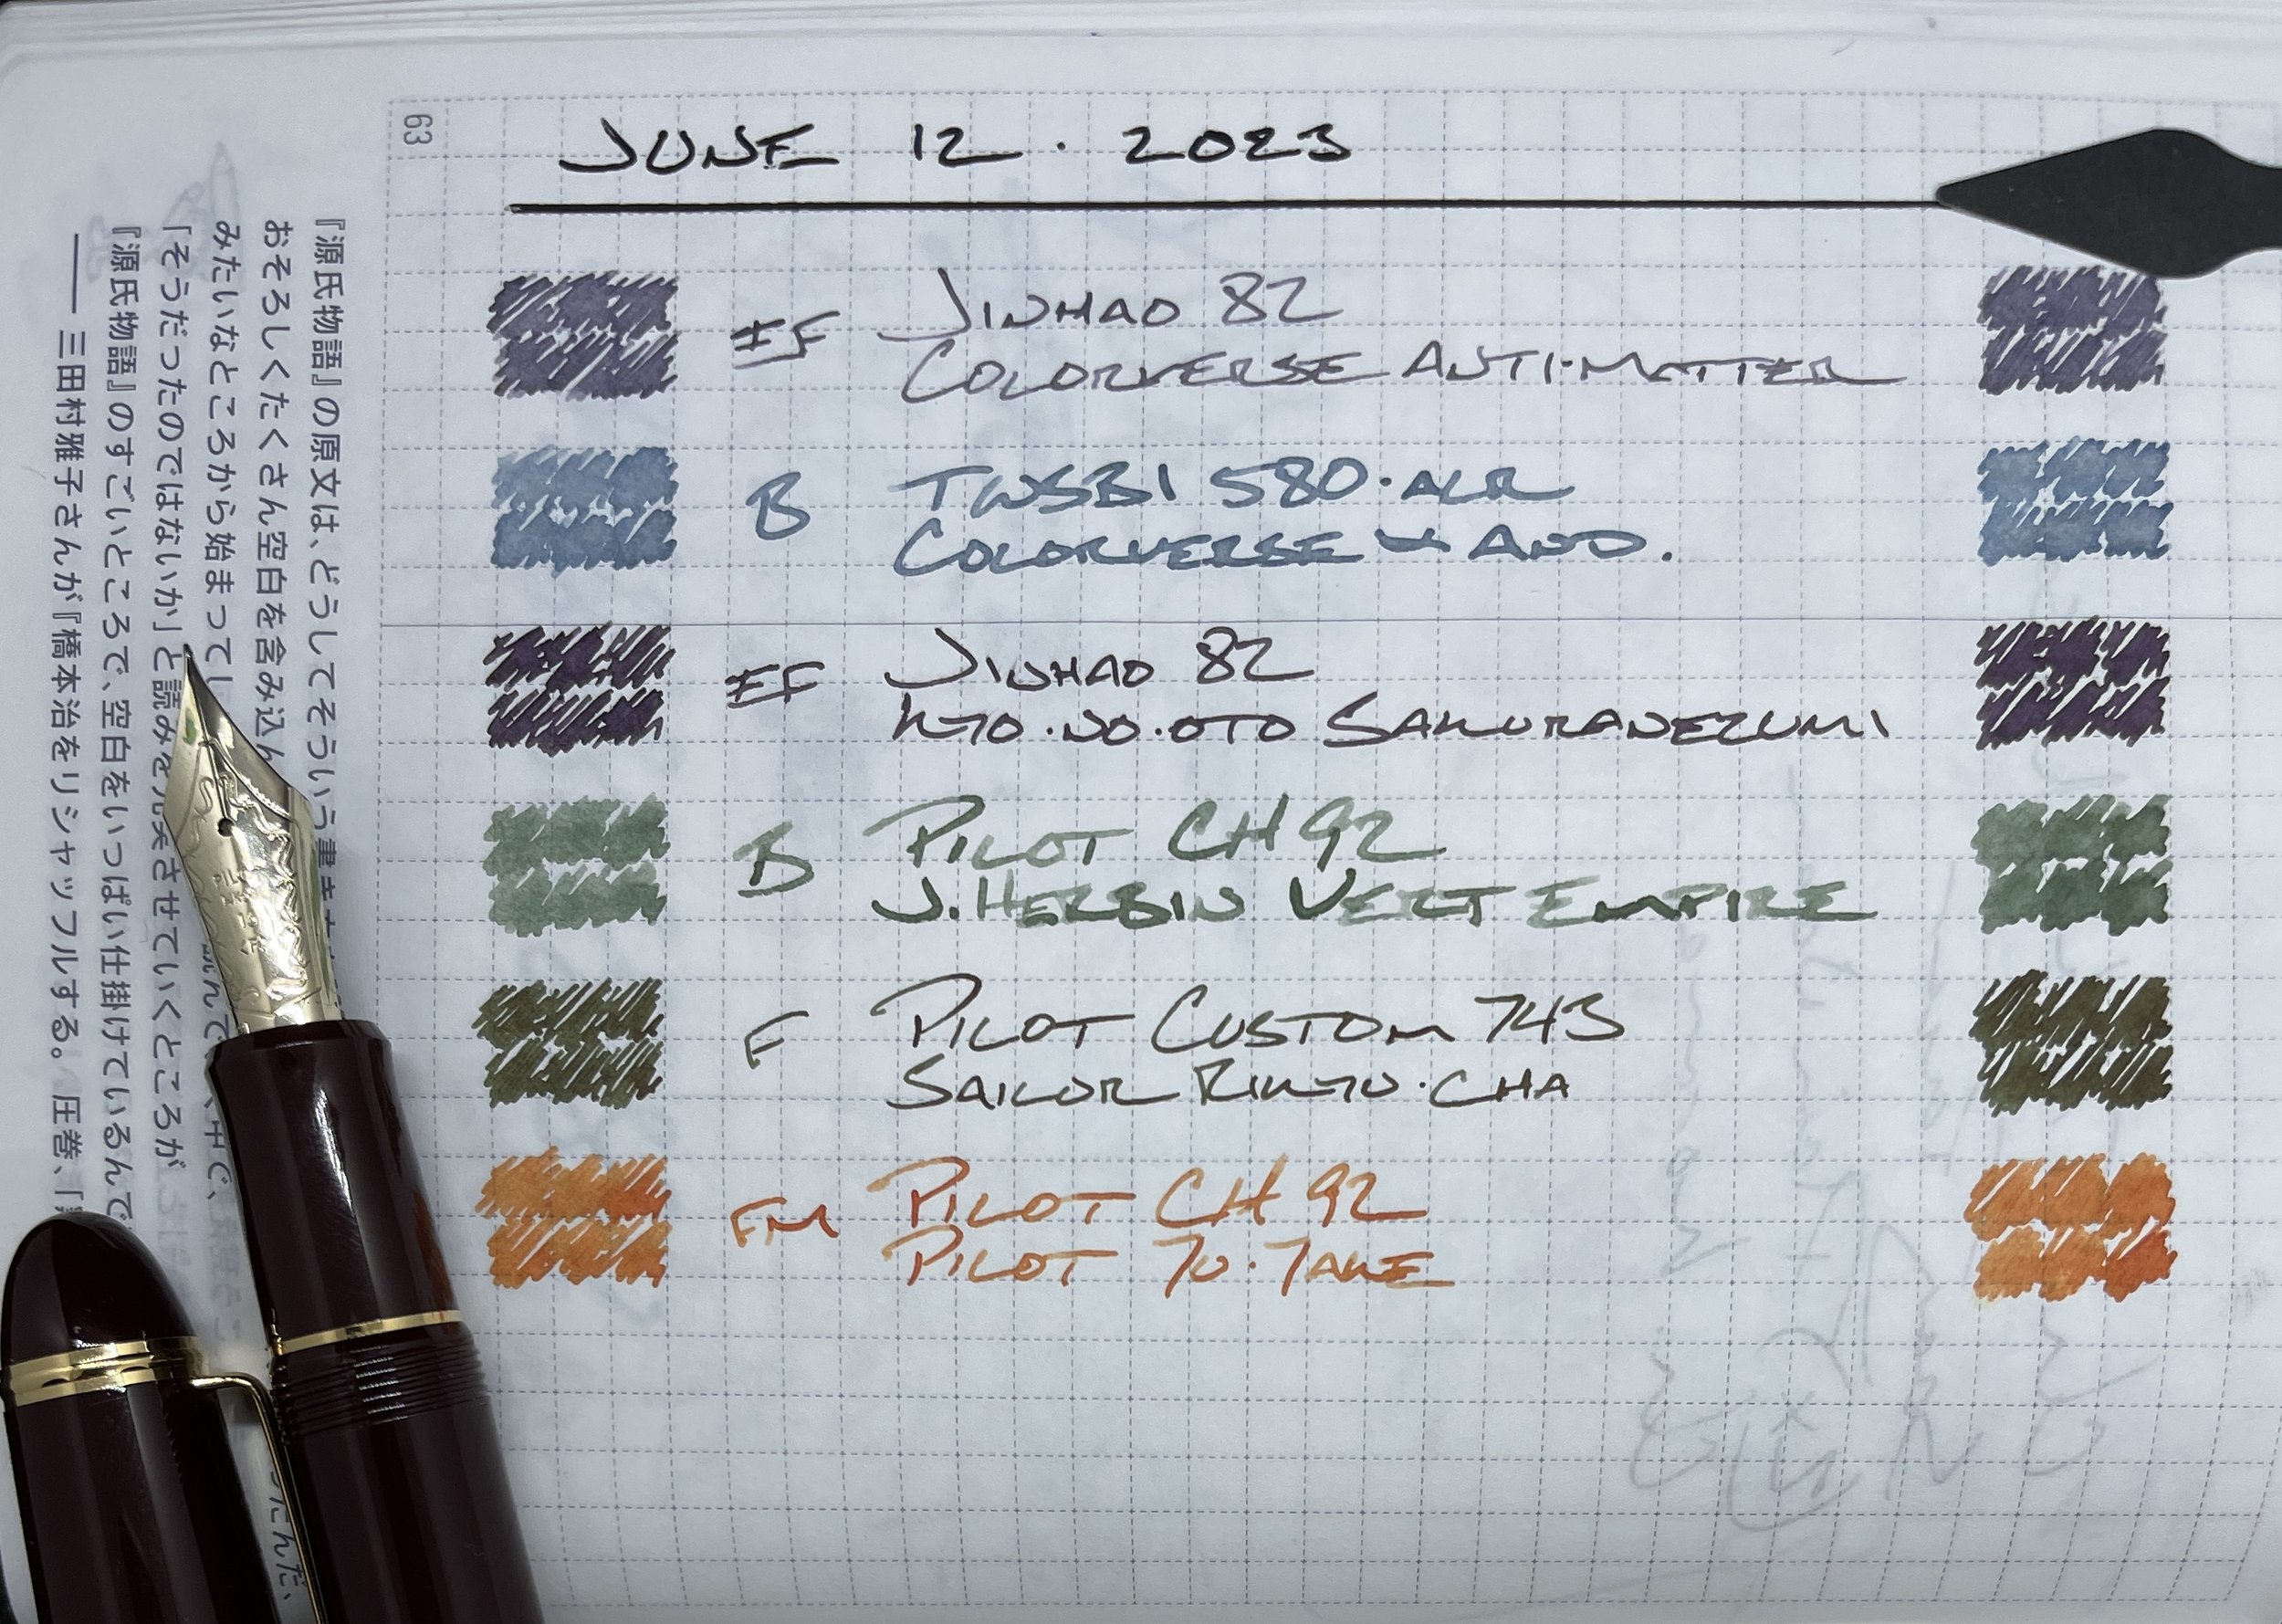 63
JUNE 12 · 2023
EF JINHAO 82
COLORVERSE ANTI·MATTER
B TWSBI 580·ALR
COLORVERSE AND.
EF JINHAO 82
KYO·NO·OTO SAKURANEZUMI
B PILOT CH 92
J. HERBIN VERT EMPIRE
F PILOT CUSTOM 743
SAILOR RIKYU·CHA
FM PILOT CH 92
PILOT YU·YAKE
『源氏物語』の原文は、どうしてそういう
おそろしくたくさん空白を含み込ん
みたいなところから始まって
「そうだったのではないか」と読みを させていくところが
『源氏物語』のすごいところで、空白をいっぱい仕掛けているんで
── 三田村雅子さんが『橋本治をリシャッフルする。圧巻、「